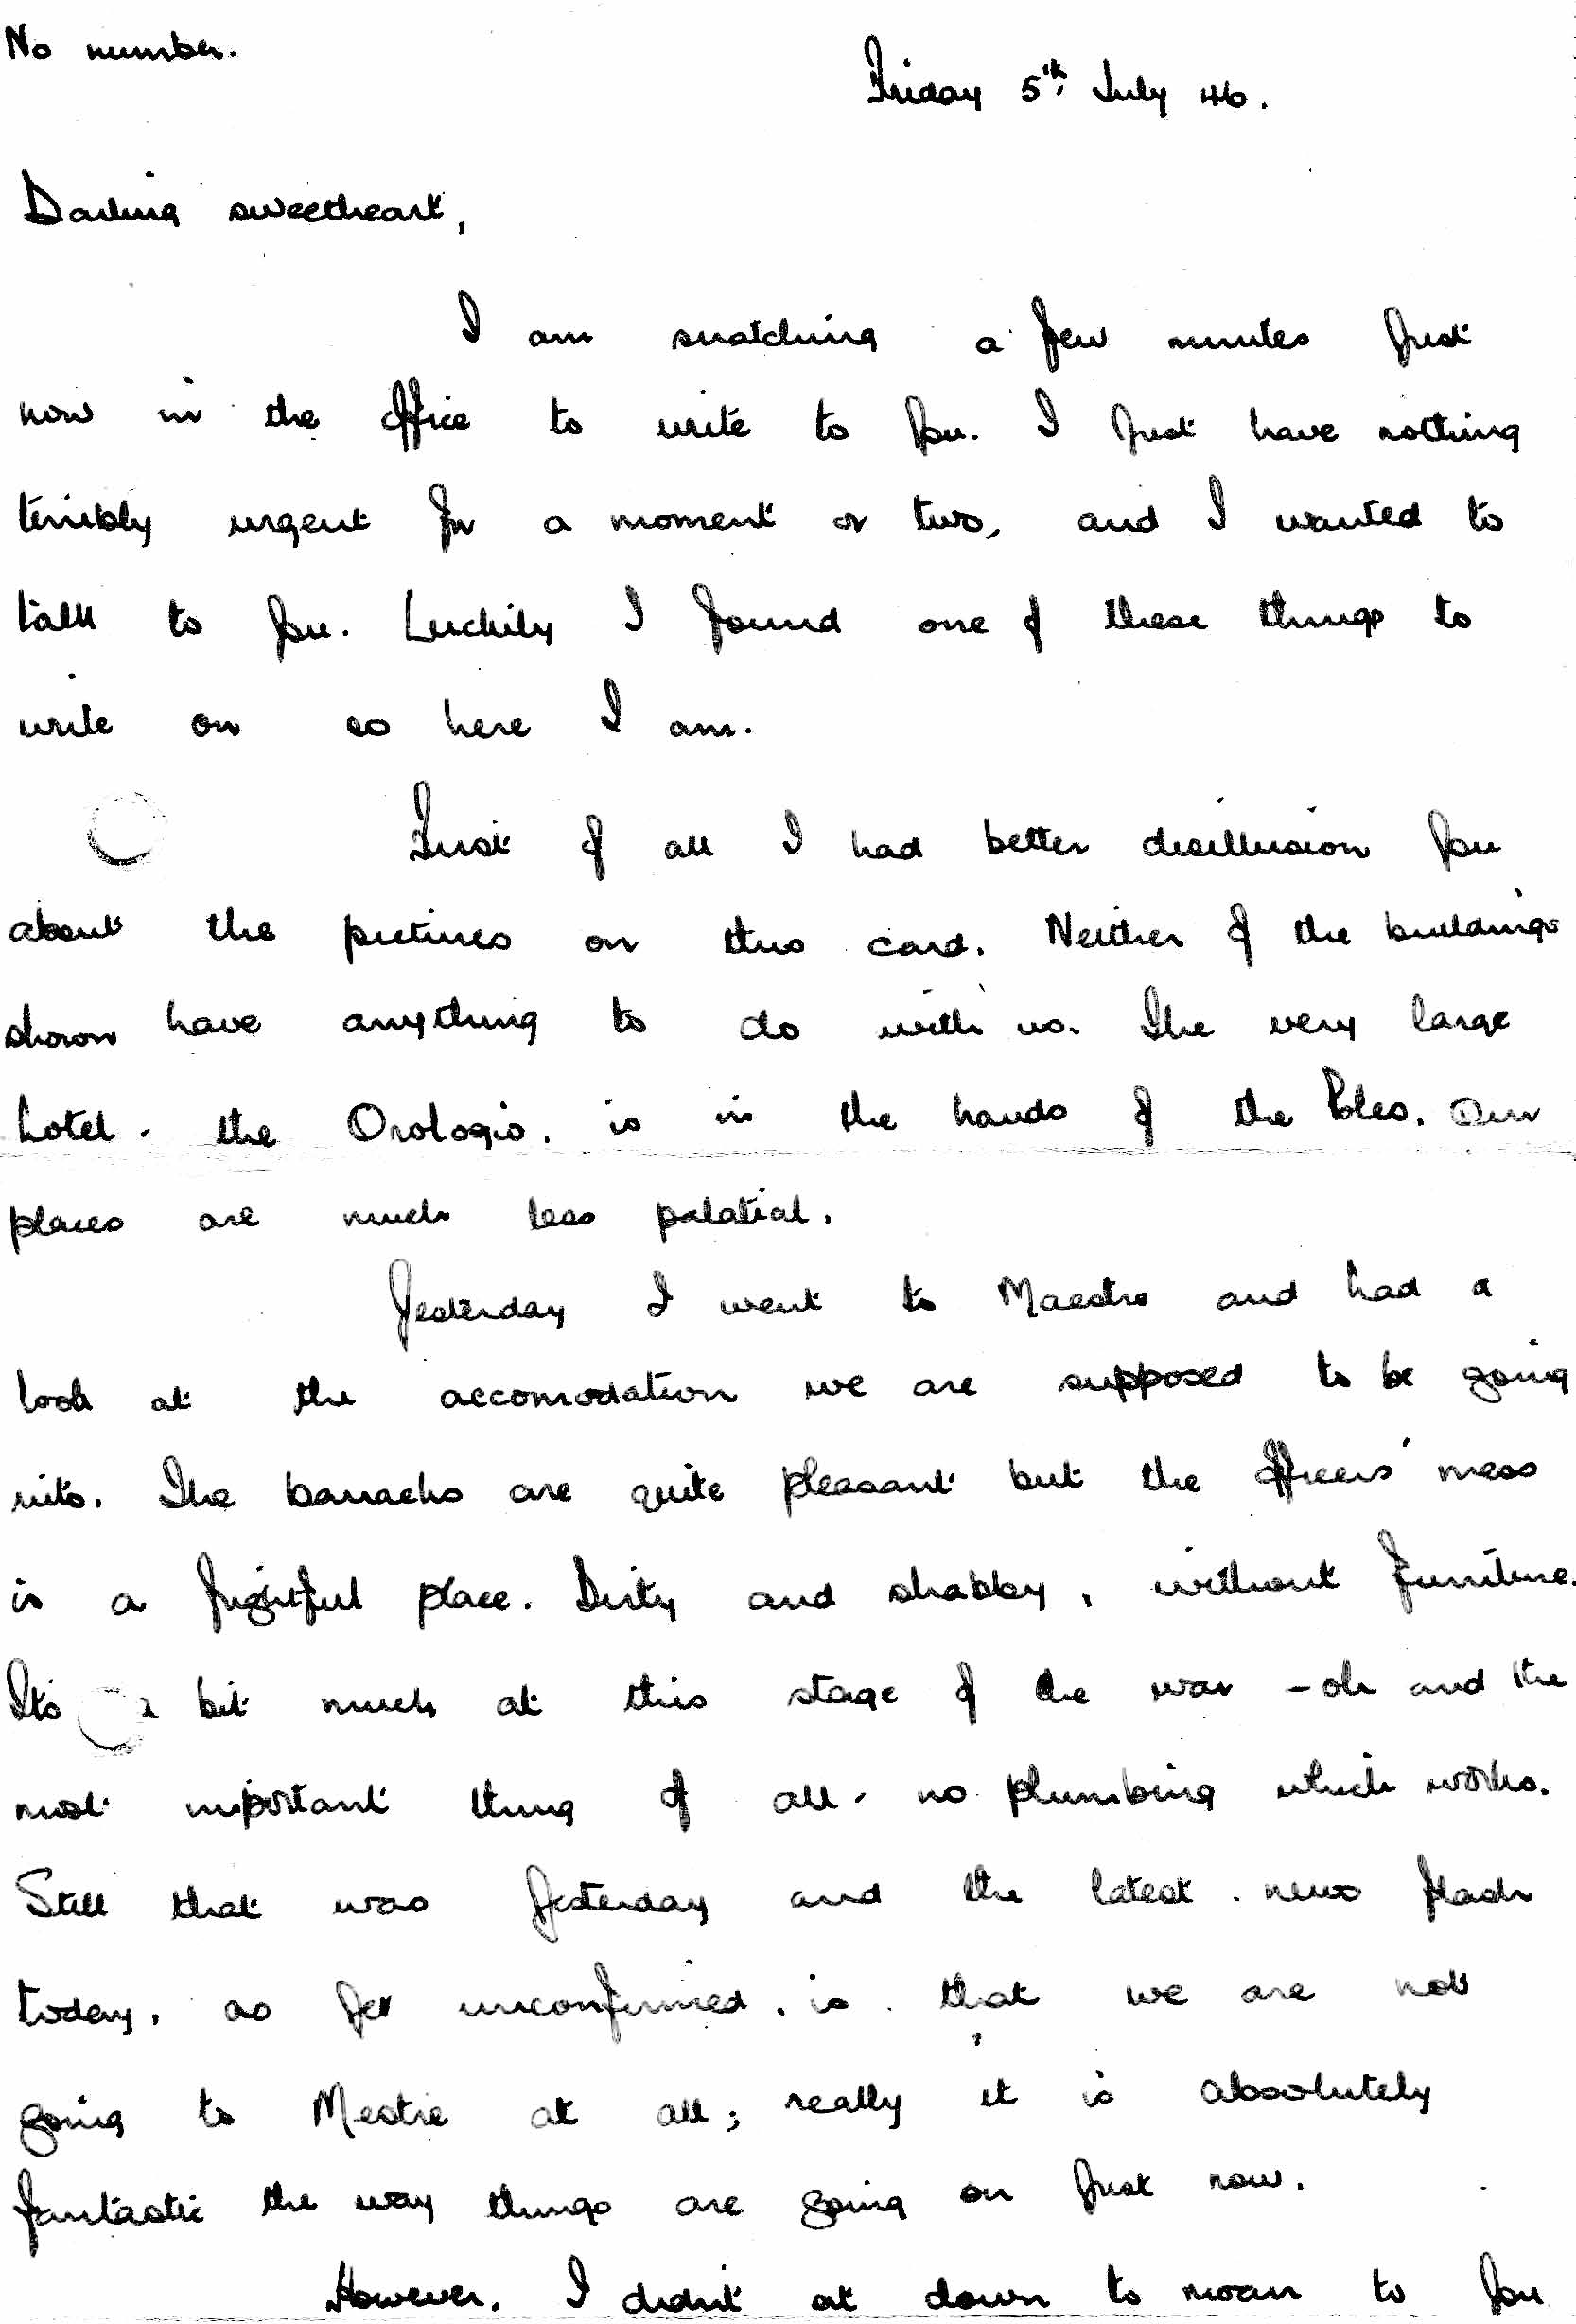 No number.
Friday 5th July 46.
Darling sweetheart,
I am snatching a few minutes just
now in the office to write to you. I just have nothing
terribly urgent for a moment or two, and I wanted to
talk to you. Luckily I found one of these things to
write on so here I am.
First of all I had better disillusion you
about the pictures on this card. Neither of the buildings
shown have anything to do with us. The very large
hotel. the Orologio. is in the hands of the Poles. Our
places are much less palatial.
Yesterday I went to Maestre and had a
look at the accomodation we are supposed to be going
into. The barracks are quite pleasant but the officers' mess
is a frightful place. Dirty and shabby, without furniture.
Its a bit much at this stage of the war - oh and the
most important thing of all. no plumbing which works.
Still that was yesterday and the latest news flash
today, as yet unconfirmed, is that we are not
going to Mestre at all; really it is absolutely
fantastic the way things are going on just now.
However, I didn't sit down to moan to you